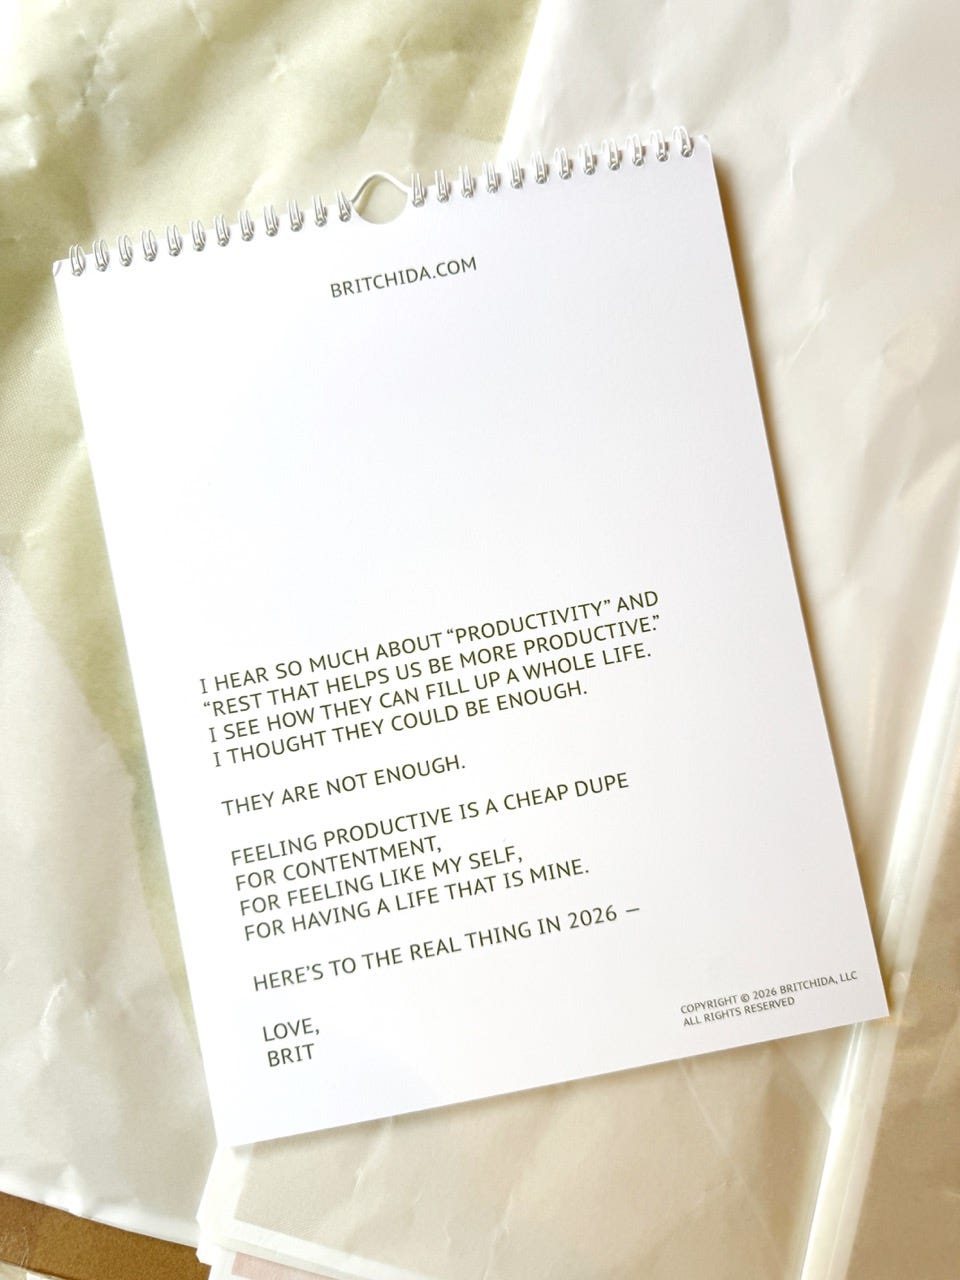 BRITCHIDA.COM
I HEAR SO MUCH ABOUT “PRODUCTIVITY” AND
“REST THAT HELPS US BE MORE PRODUCTIVE.”
I SEE HOW THEY CAN FILL UP A WHOLE LIFE.
I THOUGHT THEY COULD BE ENOUGH.
THEY ARE NOT ENOUGH.
FEELING PRODUCTIVE IS A CHEAP DUPE
FOR CONTENTMENT,
FOR FEELING LIKE MY SELF,
FOR HAVING A LIFE THAT IS MINE.
HERE’S TO THE REAL THING IN 2026 —
LOVE,
BRIT
COPYRIGHT © 2026 BRITCHIDA, LLC
ALL RIGHTS RESERVED